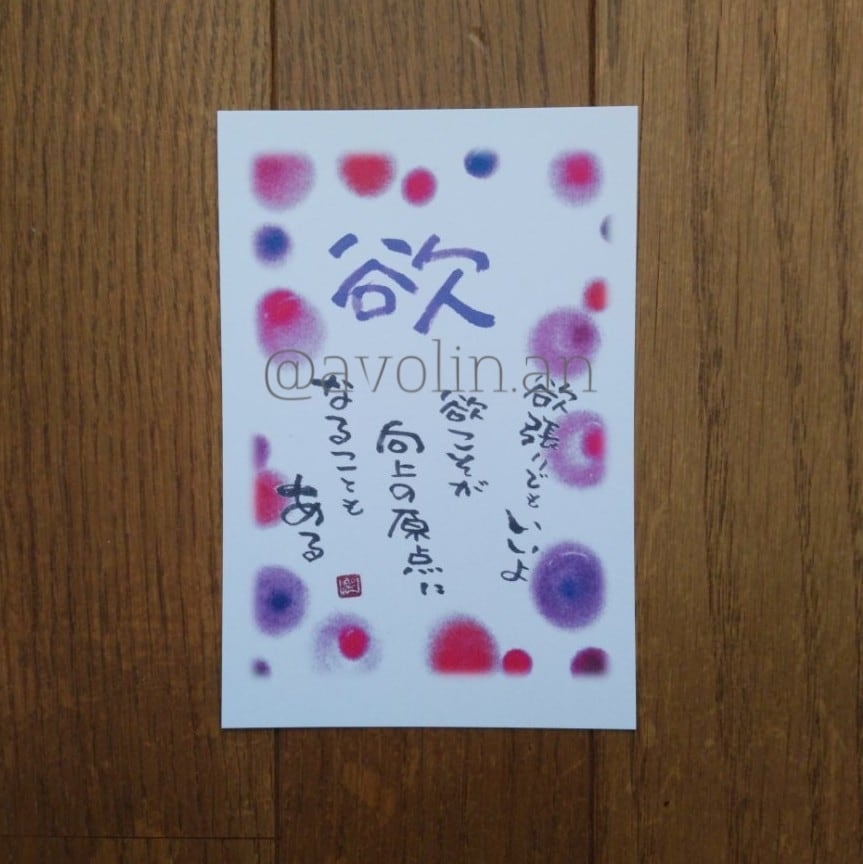 欲
@avolin.an
欲張りでもいいよ
欲こそが
向上の原点に
なることも
ある